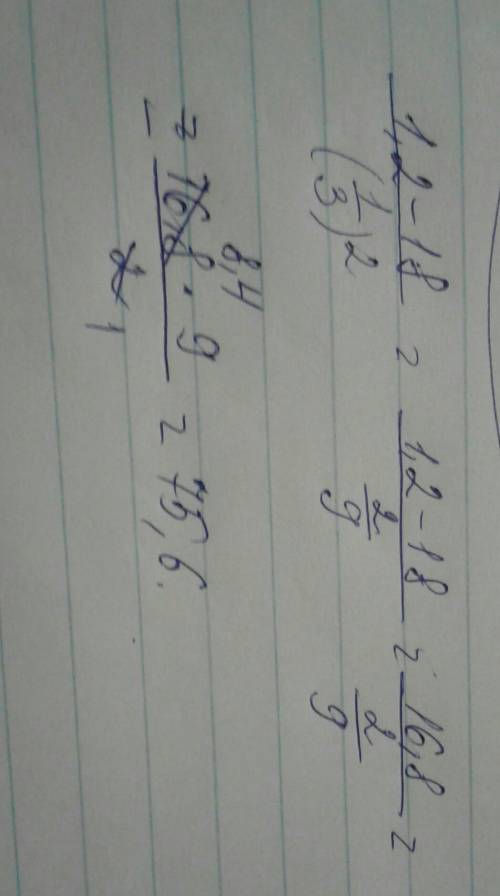 (1,2-18)/((1/3)2) = (1,2-18)/(2/9) = (16,8)/(2/9) =
= - (16,8 · 9)/2 = 75,6.
8,4
1